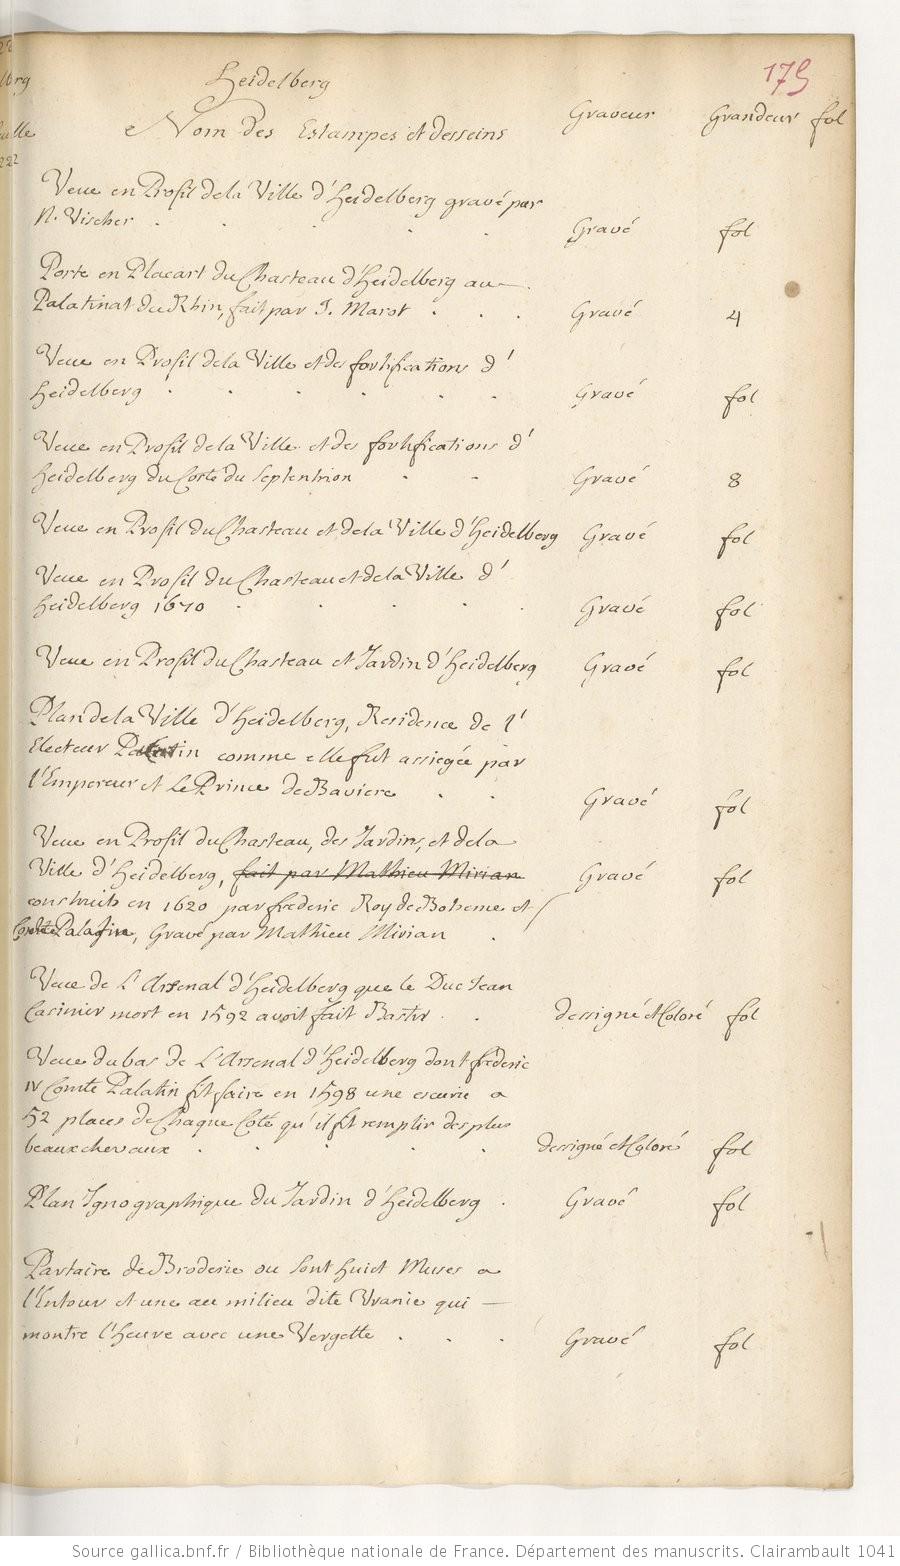 175
Heidelberg
Nom des Estampes et desseins Graveur Grandeur fol
Veue en Profil de la Ville d'Heidelberg gravé par
N. Vischer . . . . . Gravé fol
Porte en Placart du Chasteau d'Heidelberg au
Palatinat du Rhin, fait par J. Marot . . . Gravé 4
Veue en Profil de la Ville et des fortifications d'
Heidelberg . . . . . . Gravé fol
Veue en Profil de la Ville et des fortifications d'
Heidelberg du Costé du Septentrion . . Gravé 8
Veue en Profil du Chasteau et de la Ville d'Heidelberg Gravé fol
Veue en Profil du Chasteau et de la Ville d'
Heidelberg 1670 . . . . . Gravé fol
Veue en Profil du Chasteau et Jardin d'Heidelberg Gravé fol
Plan de la Ville d'Heidelberg, Residence de l'
Electeur Palatin comme elle fut assiegée par
l'Empereur et le Prince de Baviere . . Gravé fol
Veue en Profil du Chasteau, des Jardins, et de la
Ville d'Heidelberg, fait par Mathieu Mirian Gravé fol
construits en 1620 par frederic Roy de Boheme et
Comte Palatin, Gravé par Mathieu Mirian .
Veue de L'Arsenal d'Heidelberg que le Duc Jean
Casimir mort en 1592 avoit fait Bastir . . dessigné et Coloré fol
Veue du bas de L'Arsenal d'Heidelberg dont frederic
IV Comte Palatin fit faire en 1598 une escurie a
52 places de Chaque Coté qu'il fit remplir des plus
beaux chevaux . . . . . dessigné et Coloré fol
Plan Ignographique du Jardin d'Heidelberg . Gravé fol
Partaire de Broderie ou sont huict Muses a
l'Entour et une au milieu dite Uranie qui
montre l'heure avec une Vergette . . . Gravé fol
Source gallica.bnf.fr / Bibliothèque nationale de France. Département des manuscrits. Clairambault 1041